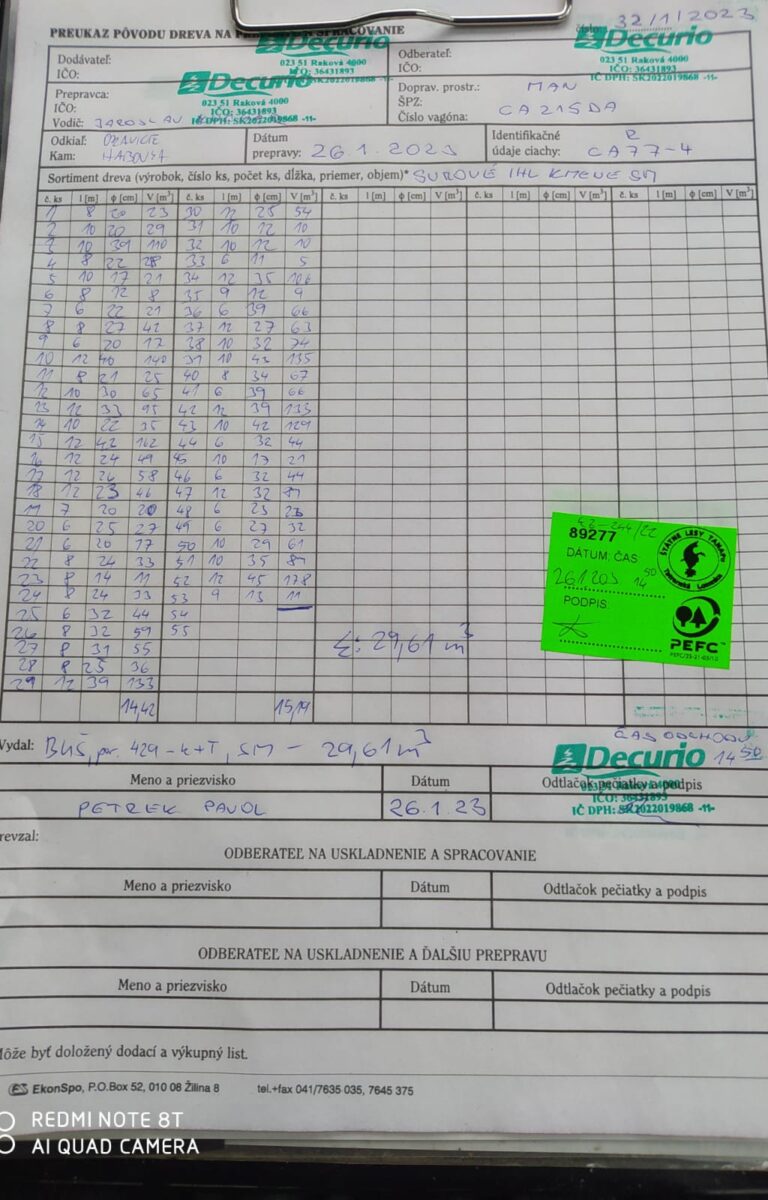 číslo: 32/1/2023
PREUKAZ PÔVODU DREVA NA SPRACOVANIE
Decurio
023 51 Raková 4000
IČO: 36431893
IČ DPH: SK2022019868 -11-
Decurio
Dodávateľ:
IČO:
Odberateľ:
IČO:
Decurio
023 51 Raková 4000
IČO: 36431893
IČ DPH: SK2022019868 -11-
Prepravca:
IČO:
Vodič: JAROSLAV
Doprav. prostr.: MAN
ŠPZ: CA215DA
Číslo vagóna:
Odkiaľ: ORAVICE
Kam: HABOVKA
Dátum
prepravy: 26.1.2023
Identifikačné R
údaje ciachy: CA77-4
Sortiment dreva (výrobok, číslo ks, počet ks, dĺžka, priemer, objem)* SUROVÉ IHL KMENE SM
č. ks l [m] ϕ [cm] V [m³] č. ks l [m] ϕ [cm] V [m³] č. ks l [m] ϕ [cm] V [m³] č. ks l [m] ϕ [cm] V [m³] č. ks l [m] ϕ [cm] V [m³]
1 8 20 23 30 12 25 54
2 10 20 29 31 10 12 10
3 10 39 110 32 10 12 10
4 8 22 28 33 6 11 5
5 10 17 21 34 12 35 106
6 8 12 8 35 9 12 9
7 6 22 21 36 6 39 66
8 8 27 42 37 12 27 63
9 6 20 17 38 10 32 74
10 12 40 140 39 10 43 135
11 8 21 25 40 8 34 67
12 10 30 65 41 6 39 66
13 12 33 95 42 12 39 133
14 10 22 35 43 10 42 129
15 12 42 162 44 6 32 44
16 12 24 49 45 10 17 21
17 12 26 58 46 6 32 44
18 12 23 46 47 12 32 89
19 7 20 20 48 6 23 23
20 6 25 27 49 6 27 32
21 6 20 17 50 10 29 61
22 8 24 33 51 10 35 89
23 8 14 11 52 12 45 178
24 8 24 33 53 9 13 11
25 6 32 44 54
26 8 32 59 55
27 8 31 55
28 8 25 36
29 12 39 133
Σ: 29,61 m³
14,42 15,19
42-244/22
89277
DÁTUM, ČAS
261203 14 50
PODPIS:
ŠTÁTNE LESY TANAPU
Tatranská Lomnica
PEFC™
Vydal: por. 429-k+T, SM - 29,61 m³
ČAS ODCHODU
14 50
Decurio
023 51 Raková 4000
IČO: 36431893
IČ DPH: SK2022019868 -11-
Meno a priezvisko Dátum Odtlačok pečiatky a podpis
PETREK PAVOL 26.1.23
revzal:
ODBERATEĽ NA USKLADNENIE A SPRACOVANIE
Meno a priezvisko Dátum Odtlačok pečiatky a podpis
ODBERATEĽ NA USKLADNENIE A ĎALŠIU PREPRAVU
Meno a priezvisko Dátum Odtlačok pečiatky a podpis
Môže byť doložený dodací a výkupný list.
ES EkonSpo, P.O.Box 52, 010 08 Žilina 8 tel.+fax 041/7635 035, 7645 375
REDMI NOTE 8T
AI QUAD CAMERA